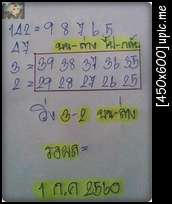 142 = 9 8 7 6 5
47 บน-ล่าง ไป-กลับ
3 = 39 38 37 36 35
2 = 29 28 27 26 25
วิ่ง 3-2 บน-ล่าง
1 ก.ค 2560
[450x600] upic.me